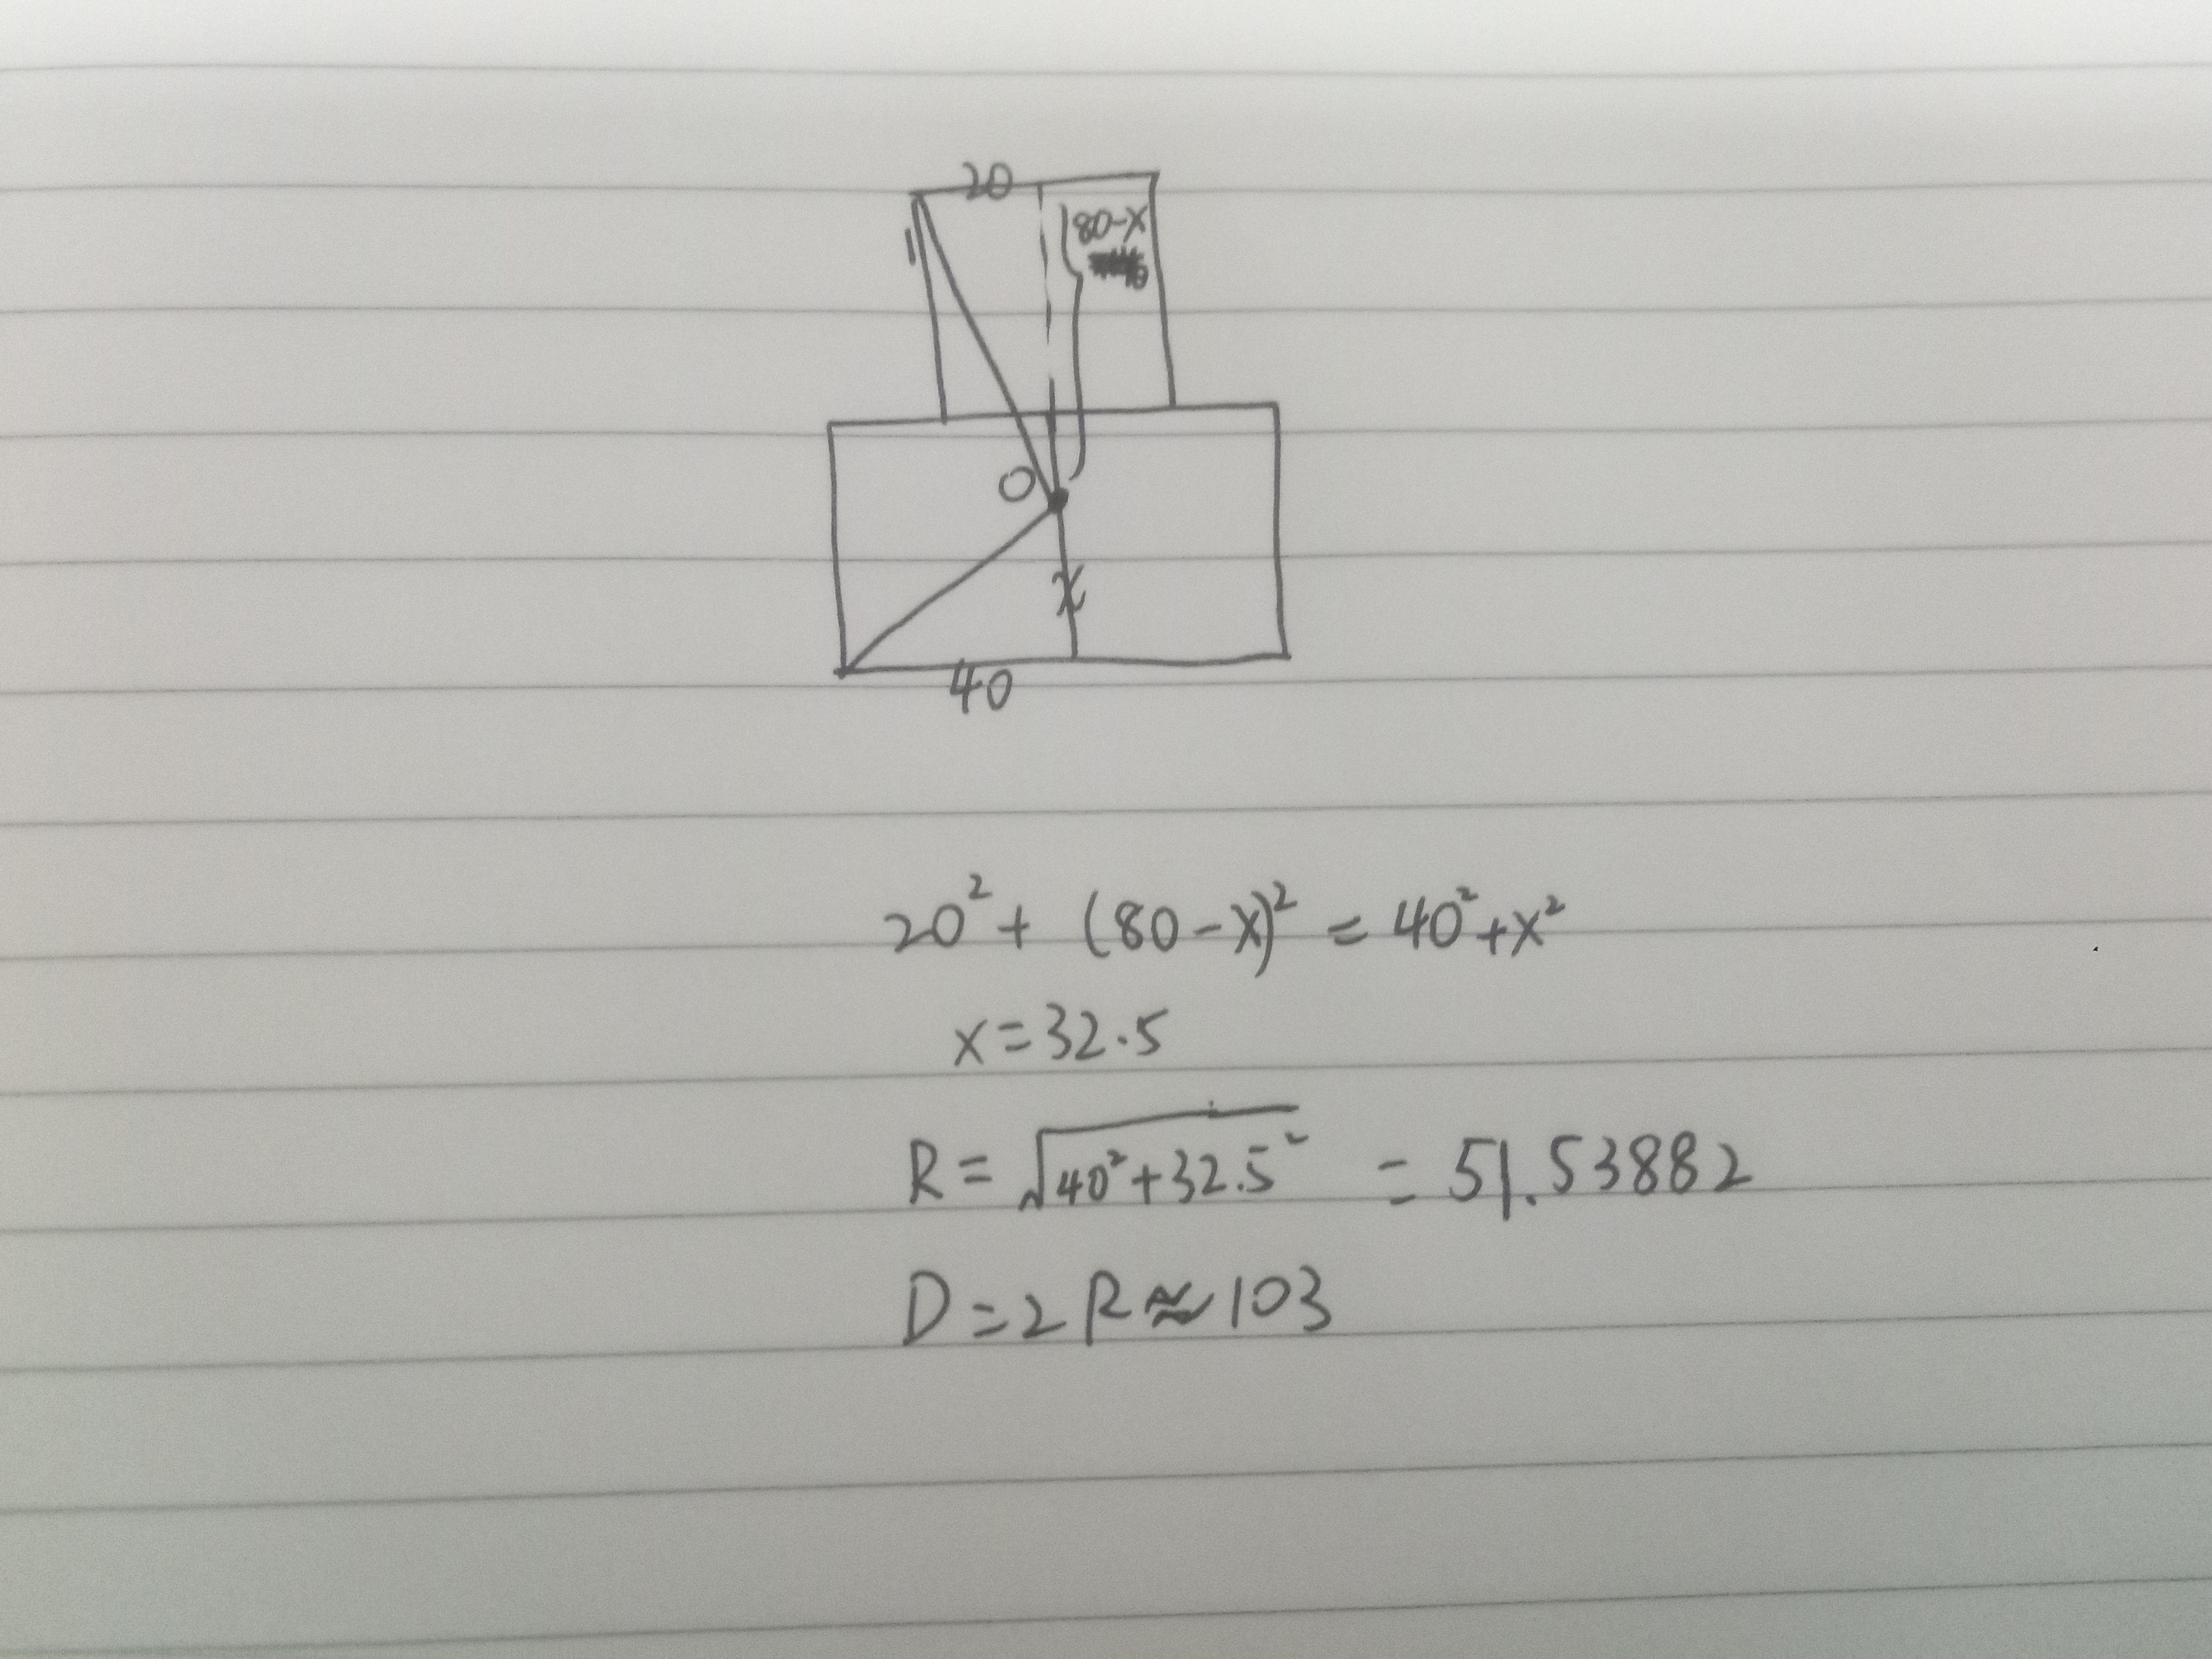 20
80-x
O
x
40
20² + (80-x)² = 40²+x²
x=32.5
R= √40²+32.5² = 51.53882
D=2R≈103